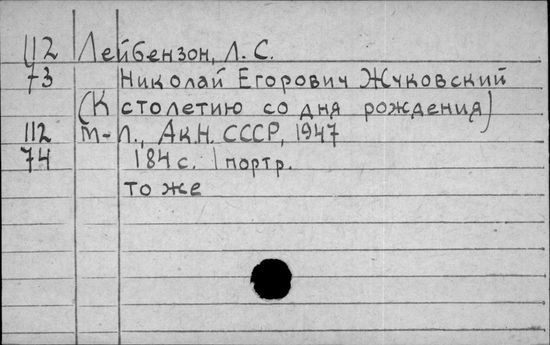 112 Лейбензон, Л. С.
73 Николай Егорович Жуковский
(К столетию со дня рождения)
112 М-Л., Ак.Н. СССР, 1947
74 184 с. 1 портр.
то же